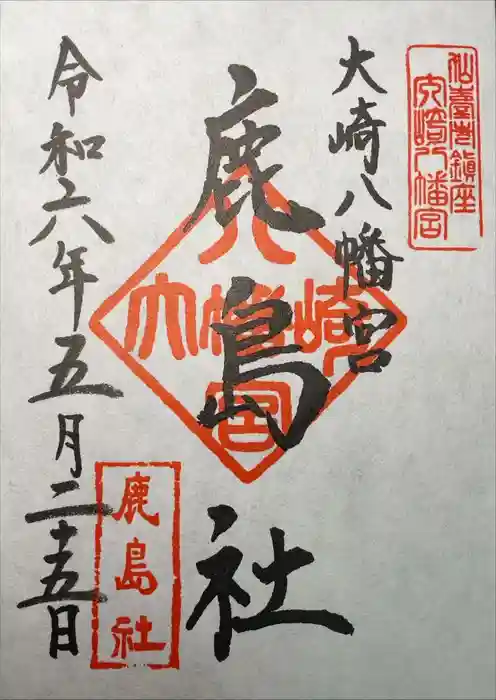 仙臺市鎮座
大崎八幡宮
大崎八幡宮
鹿島社
八
大幡崎
宮
鹿島社
令和六年五月二十五日